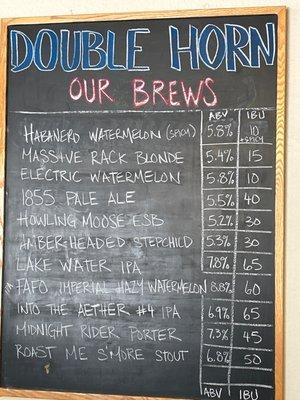 DOUBLE HORN
OUR BREWS
ABV IBU
HABANERO WATERMELON (SPICY) 5.8% 10 + SPICY
MASSIVE RACK BLONDE 5.4% 15
ELECTRIC WATERMELON 5.8% 10
1855 PALE ALE 5.5% 40
HOWLING MOOSE ESB 5.2% 30
AMBER-HEADED STEPCHILD 5.3% 30
LAKE WATER IPA 7.8% 65
FAFO IMPERIAL HAZY WATERMELON 8.8% 60
INTO THE AETHER #4 IPA 6.9% 65
MIDNIGHT RIDER PORTER 7.3% 45
ROAST ME S'MORE STOUT 6.8% 50
ABV IBU